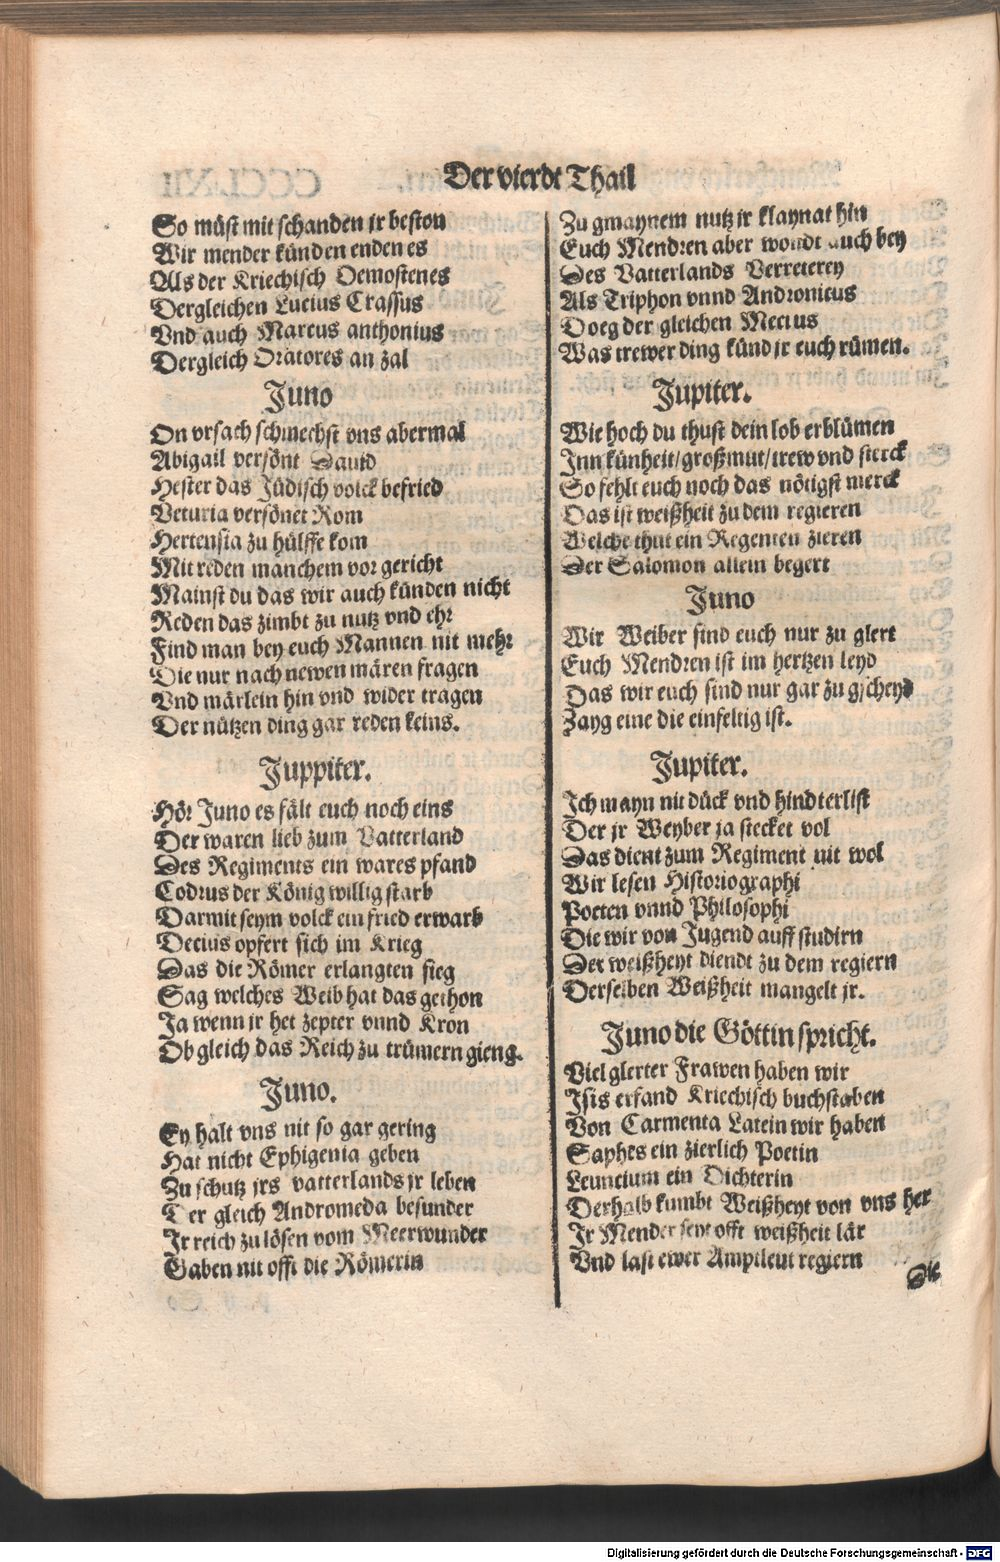 Der vierdt Thail
So müst mit schanden jr beston
Wir mender künden enden es
Als der Kriechisch Demostenes
Dergleichen Lucius Crassus
Vnd auch Marcus anthonius
Dergleich Oratores an zal
Juno
On vrsach schmechst vns abermal
Abigail versönt Dauid
Hester das Jüdisch volck befried
Veturia versönet Rom
Hertensia zu hülffe kom
Mit reden manchem vor gericht
Mainst du das wir auch künden nicht
Reden das zimbt zu nutz vnd ehr
Find man bey euch Mannen nit mehr
Die nur nach newen mären fragen
Vnd märlein hin vnd wider tragen
Der nützen ding gar reden keins.
Juppiter.
Hör Juno es fält euch noch eins
Der waren lieb zum Vatterland
Des Regiments ein wares pfand
Codrus der König willig starb
Darmit seym volck ein fried erwarb
Decius opfert sich im Krieg
Das die Römer erlangten sieg
Sag welches Weib hat das gethon
Ja wenn jr het zepter vnnd Kron
Ob gleich das Reich zu trümern gieng.
Juno.
Ey halt vns nit so gar gering
Hat nicht Ephigenia geben
Zu schutz jrs vatterlands jr leben
Der gleich Andromeda besunder
Jr reich zu lösen vom Meerwunder
Gaben nit offt die Römerin
Zu gmaynem nutz jr klaynat hin
Euch Mendren aber wondt auch bey
Des Vatterlands Verreterey
Als Triphon vnnd Andronicus
Doeg der gleichen Mecius
Was trewer ding künd jr euch rümen.
Jupiter.
Wie hoch du thust dein lob erblümen
Jnn künheit/großmut/trew vnd sterck
So fehlt euch noch das nötigst merck
Das ist weißheit zu dem regieren
Welche thut ein Regenten zieren
Der Salomon allein begert
Juno
Wir Weiber sind euch nur zu glert
Euch Mendren ist im hertzen leyd
Das wir euch sind nur gar zu gscheyd
Zayg eine die einfeltig ist.
Jupiter.
Jch mayn nit dück vnd hindterlist
Der jr Weyber ja stecket vol
Das dient zum Regiment nit wol
Wir lesen Historiographi
Poeten vnnd Philosophi
Die wir von Jugend auff studirn
Der weißheyt diendt zu dem regiern
Derselben Weißheit mangelt jr.
Juno die Göttin spricht.
Viel glerter Frawen haben wir
Jsis erfand Kriechisch buchstaben
Von Carmenta Latein wir haben
Saphes ein zierlich Poetin
Leuncium ein Dichterin
Derhalb kumbt Weißheyt von vns her
Jr Mender seyt offt weißheit lär
Vnd last ewer Amptleut regiern
Die
Digitalisierung gefördert durch die Deutsche Forschungsgemeinschaft - DFG